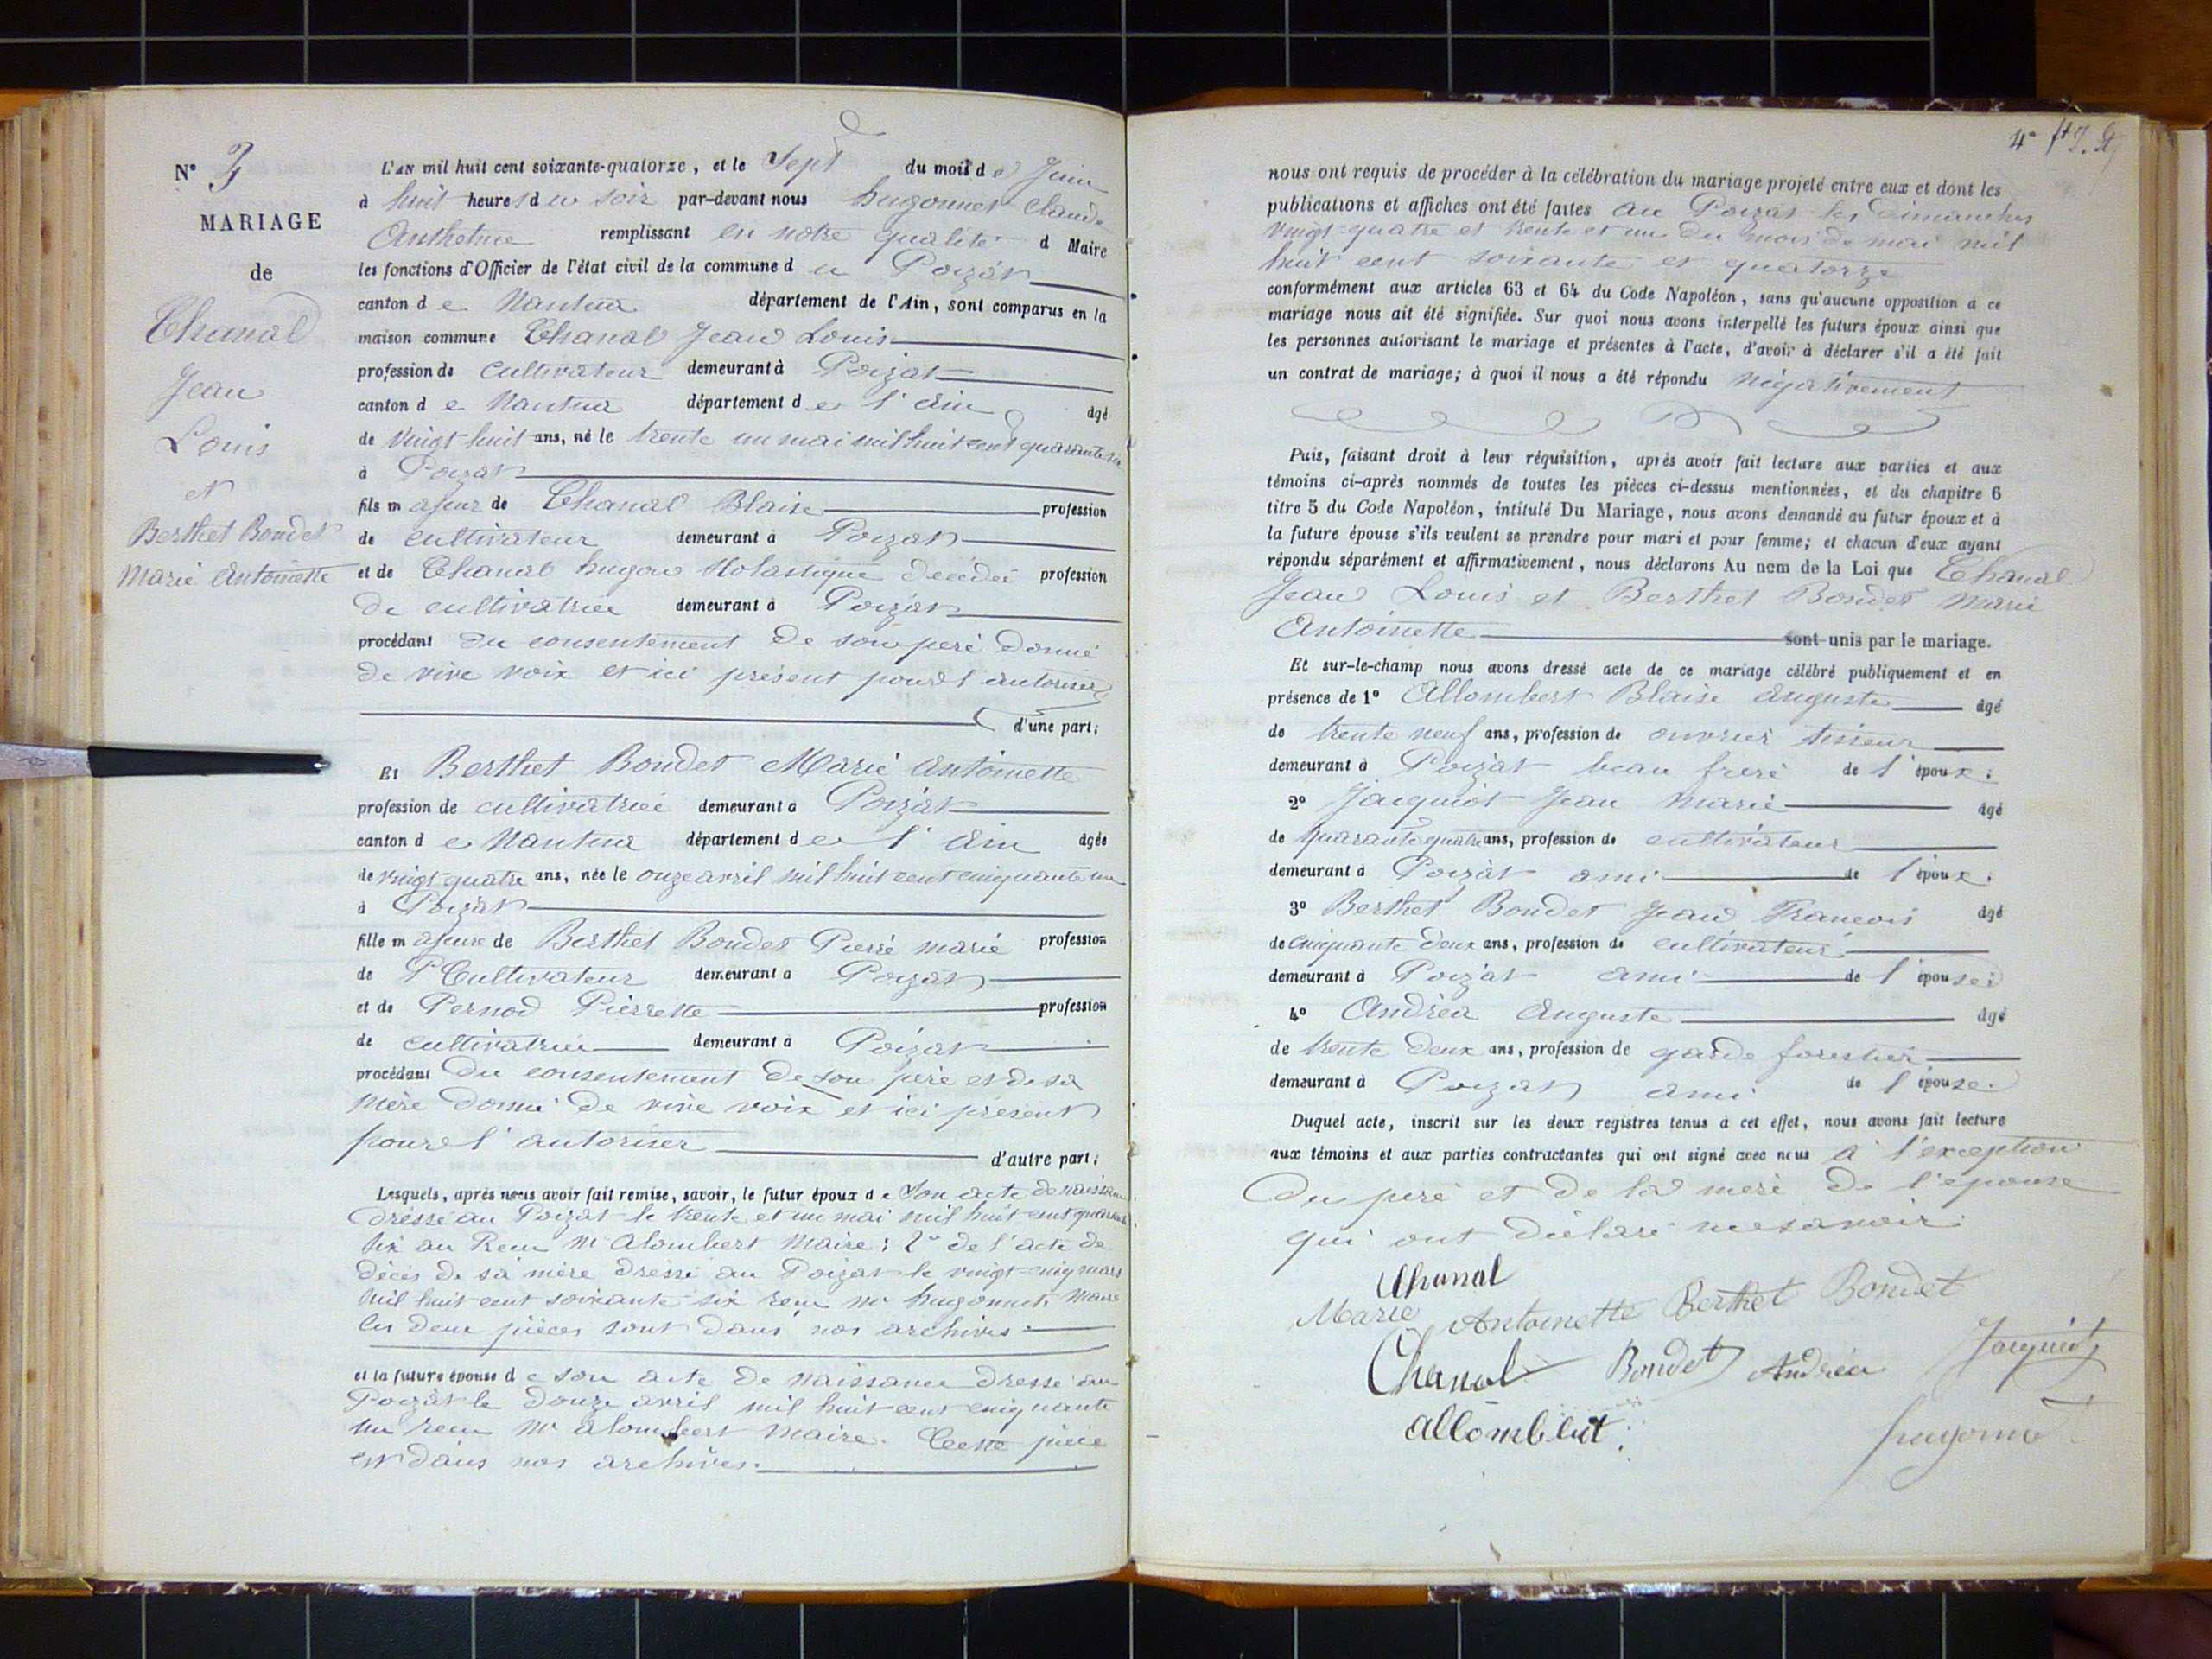 N° 3
MARIAGE
de
Chanal
Jean
Louis
et
Berthet Bondet
Marie Antoinette
L'an mil huit cent soixante-quatorze, et le Sept du mois de Juin
à huit heures du soir par-devant nous hugonnet Claude
Anthelme remplissant en notre qualité d Maire
les fonctions d'Officier de l'état civil de la commune d u Poizat
canton de Nantua département de l'Ain, sont comparus en la
maison commune Chanal Jean Louis
profession de cultivateur demeurant à Poizat
canton de Nantua département de l'Ain âgé
de vingt huit ans, né le trente un mai mil huit cent quarante six
à Poizat
fils majeur de Chanal Blaise profession
de cultivateur demeurant à Poizat
et de Chanal hugon Scholastique décédée profession
de cultivatrice demeurant à Poizat
procédant du consentement de son père donné
de vive voix et ici présent pour l'autoriser
d'une part;
Et Berthet Bondet Marie Antoinette
profession de cultivatrice demeurant à Poizat
canton de Nantua département de l'Ain âgée
de vingt quatre ans, née le onze avril mil huit cent cinquante un
à Poizat
fille majeure de Berthet Bondet Pierre marie profession
de Cultivateur demeurant à Poizat
et de Pernod Pierrette profession
de cultivatrice demeurant à Poizat
procédant du consentement de son père et de sa
mère donné de vive voix et ici présent
pour l'autoriser d'autre part;
Lesquels, après nous avoir fait remise, savoir, le futur époux de son acte de naissance
dressé au Poizat le trente et un mai mil huit cent quarante
six au Reçu Mr Alombert Maire; 2° de l'acte de
décès de sa mère dressé au Poizat le vingt-cinq mars
mil huit cent soixante six reçu Mr hugonnet Maire
les deux pièces sont dans nos archives
et la future épouse de son acte de naissance dressé au
Poizat le douze avril mil huit cent cinquante
un reçu Mr alombert Maire. Cette pièce
est dans nos archives.
4°
nous ont requis de procéder à la célébration du mariage projeté entre eux et dont les
publications et affiches ont été faites au Poizat les Dimanches
vingt-quatre et trente et un du mois de mai mil
huit cent soixante et quatorze
conformément aux articles 63 et 64 du Code Napoléon, sans qu'aucune opposition à ce
mariage nous ait été signifiée. Sur quoi nous avons interpellé les futurs époux ainsi que
les personnes autorisant le mariage et présentes à l'acte, d'avoir à déclarer s'il a été fait
un contrat de mariage; à quoi il nous a été répondu négativement
Puis, faisant droit à leur réquisition, après avoir fait lecture aux parties et aux
témoins ci-après nommés de toutes les pièces ci-dessus mentionnées, et du chapitre 6
titre 5 du Code Napoléon, intitulé Du Mariage, nous avons demandé au futur époux et à
la future épouse s'ils veulent se prendre pour mari et pour femme; et chacun d'eux ayant
répondu séparément et affirmativement, nous déclarons Au nom de la Loi que Chanal
Jean Louis et Berthet Bondet Marie
Antoinette sont unis par le mariage.
Et sur-le-champ nous avons dressé acte de ce mariage célébré publiquement et en
présence de 1° Allombert Blaise Auguste âgé
de trente neuf ans, profession de ouvrier tisseur
demeurant à Poizat beau frère de l'époux;
2° Jacquiot Jean Marie âgé
de quarante quatre ans, profession de cultivateur
demeurant à Poizat ami de l'époux;
3° Berthet Bondet Jean François âgé
de cinquante deux ans, profession de cultivateur
demeurant à Poizat ami de l'épouse;
4° Andréa Auguste âgé
de trente deux ans, profession de garde forestier
demeurant à Poizat ami de l'épouse.
Duquel acte, inscrit sur les deux registres tenus à cet effet, nous avons fait lecture
aux témoins et aux parties contractantes qui ont signé avec nous à l'exception
du père et de la mère de l'épouse
qui ont déclaré ne savoir
Chanal
Marie Antoinette Berthet Bondet
Chanal Bondet Andréa Jacquiot
allombert hugonnet